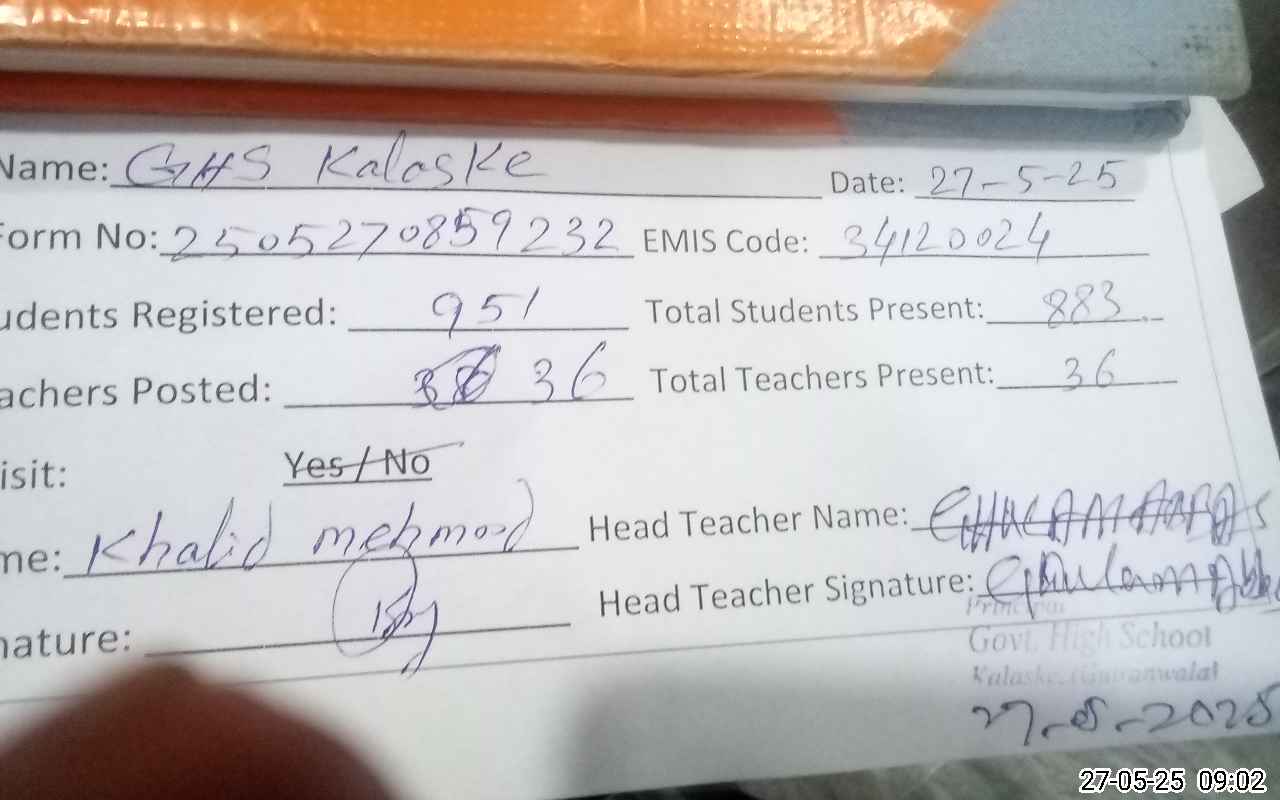 Name: GHS Kalaske Date: 27-5-25
Form No: 2505270859232 EMIS Code: 34120024
udents Registered: 951 Total Students Present: 883
achers Posted: 36 Total Teachers Present: 36
isit: Yes / No
me: Khalid mehmood Head Teacher Name: GHULAM ABBAS
nature: Head Teacher Signature: Ghulam Abbas
Principal
Govt. High School
Kalaske (Gujranwala)
27-5-2025
27-05-25 09:02